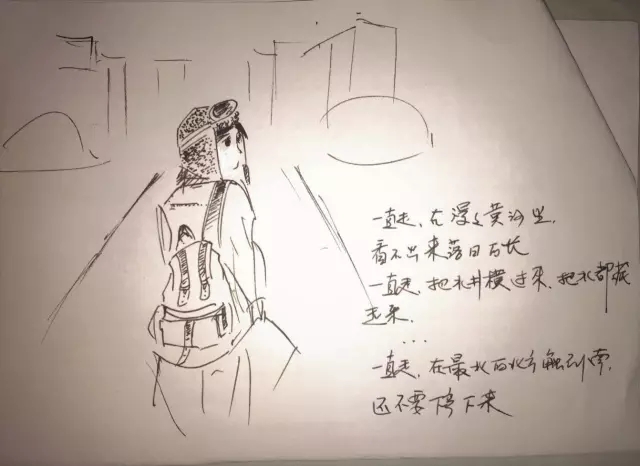 一直走、在漫々黄沙里,
看不出来落日方长
一直走、把水井横过来、把水都藏
起来.
...
一直走、在最北的北方触到南,
还不要停下来